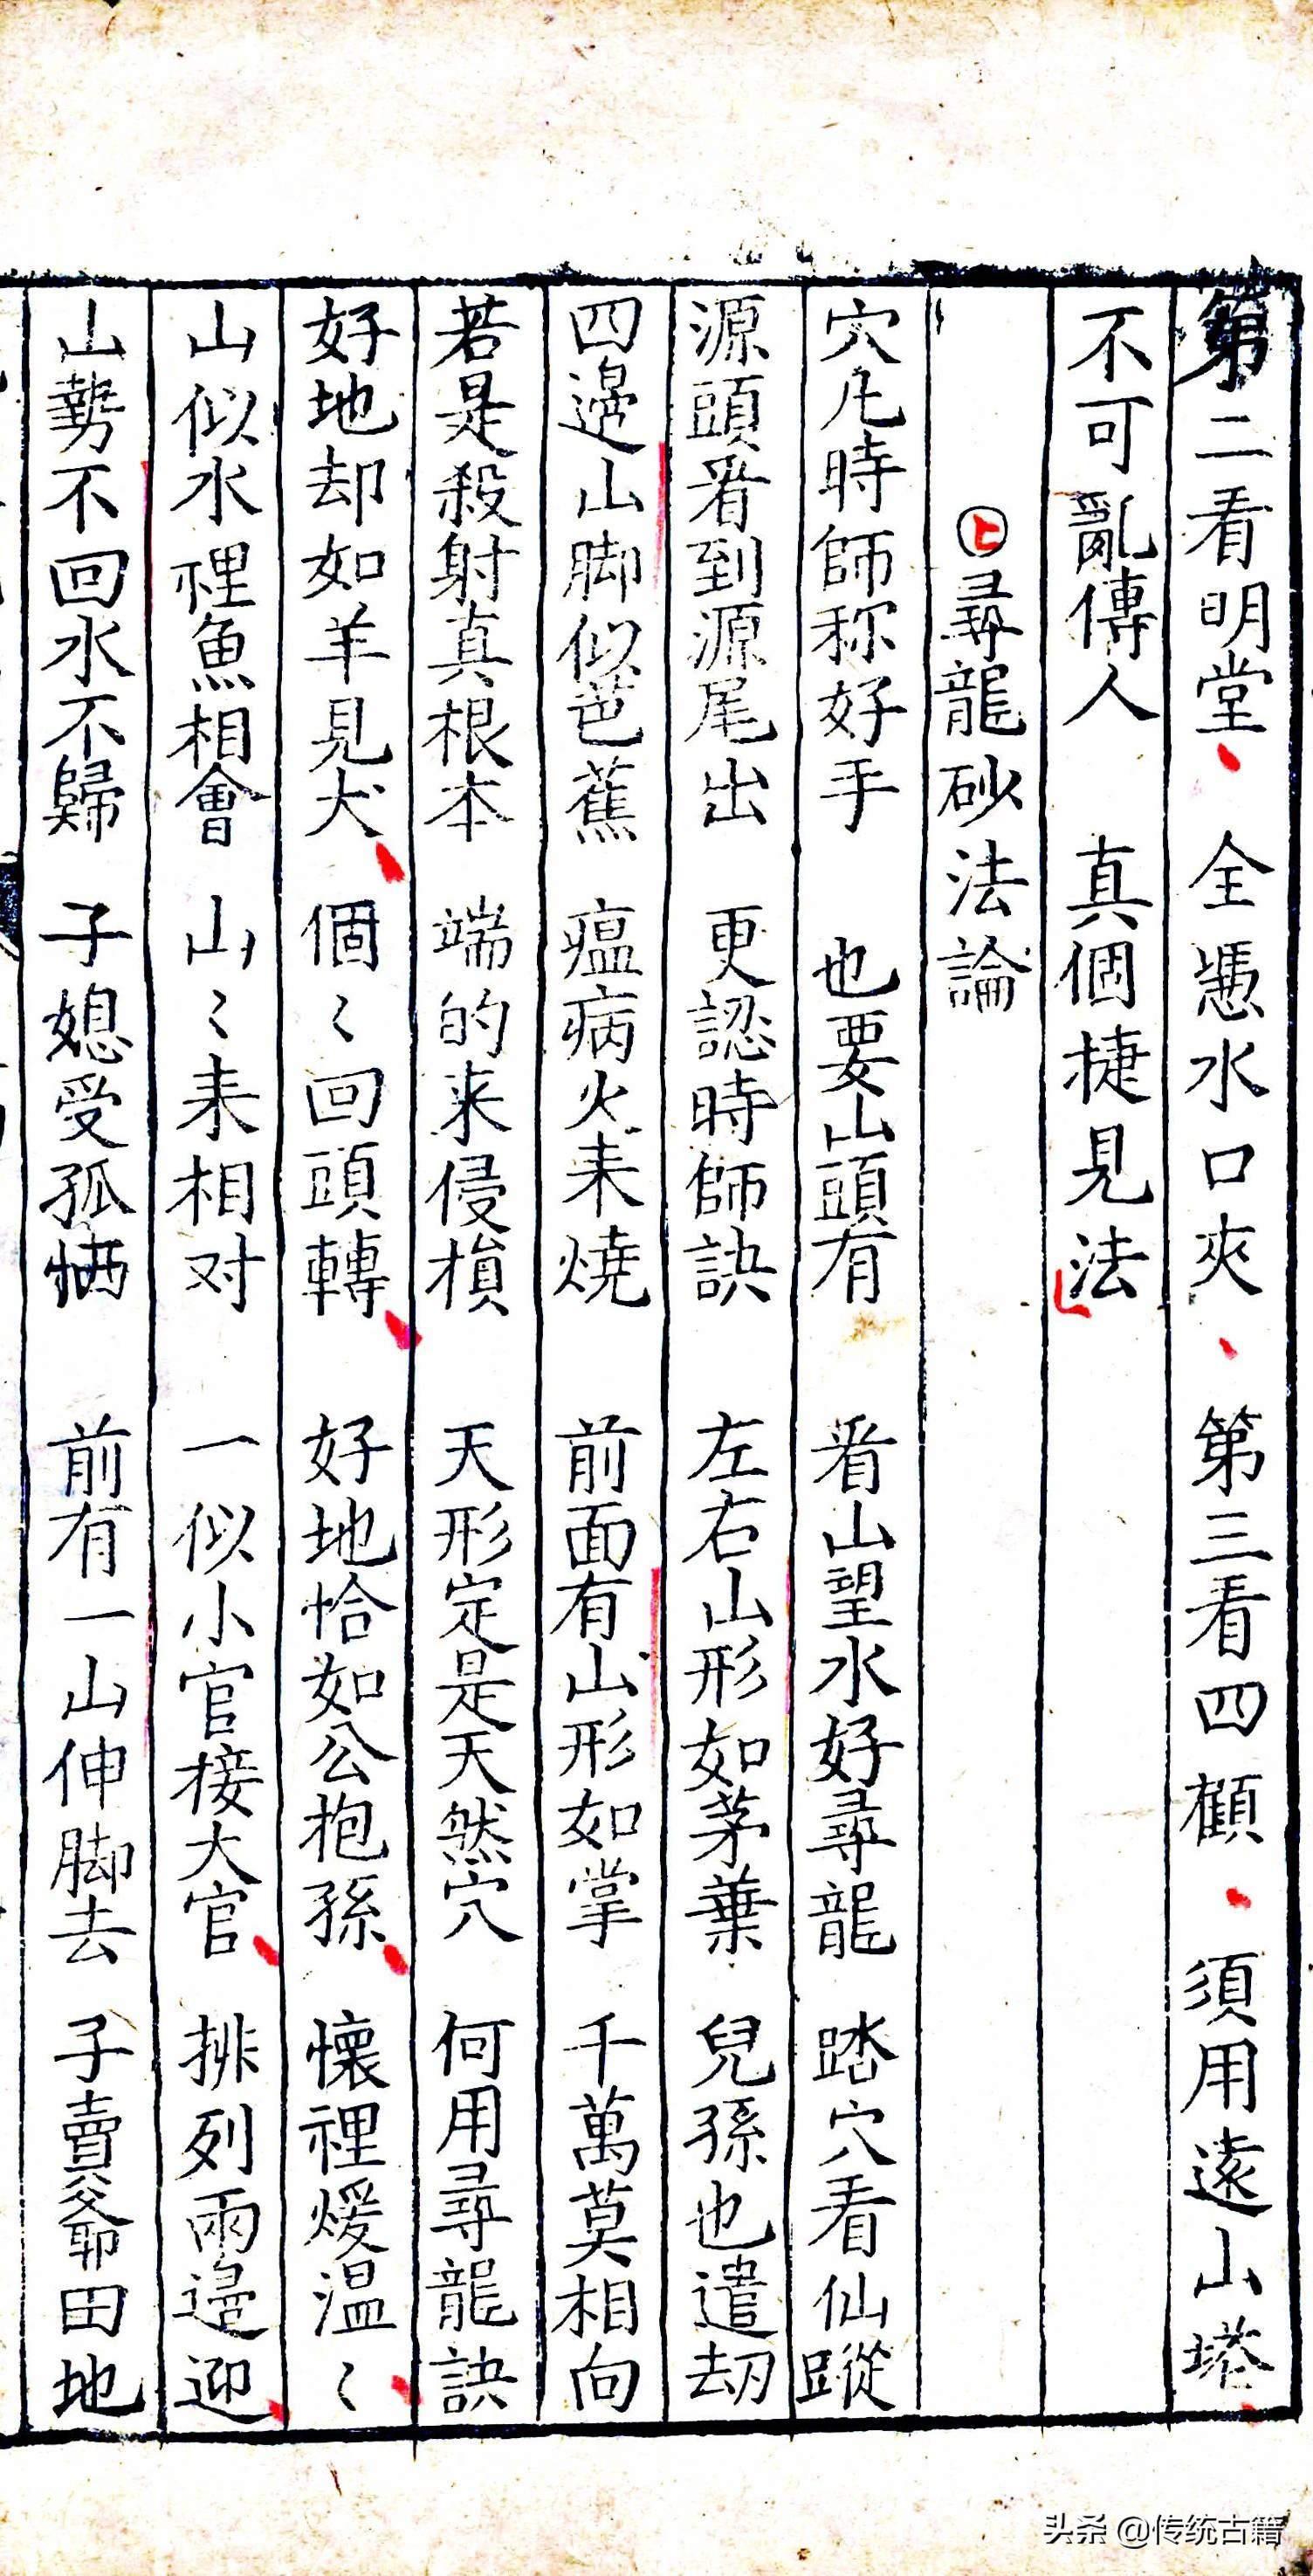 第二看明堂 全憑水口夾 第三看四顧 須用遠山塔
不可亂傳人 真個捷見法
尋龍砂法論
穴凢時師称好手 也要山頭有 看山望水好尋龍 踏穴看仙蹤
源頭看到源尾出 更認時師訣 左右山形如茅葉 兒孫也遣劫
四邊山脚似芭蕉 瘟病火来燒 前面有山形如掌 千萬莫相向
若是殺射真根本 端的来侵損 天形定是天然穴 何用尋龍訣
好地却如羊見犬 個〻回頭轉 好地恰如公抱孫 懷裡煖温〻
山似水裡魚相會 山〻来相对 一似小官接大官 排列兩邊迎
山勢不回水不歸 子媳受孤恓 前有一山伸脚去 子賣爷田地
头条 @传统古籍